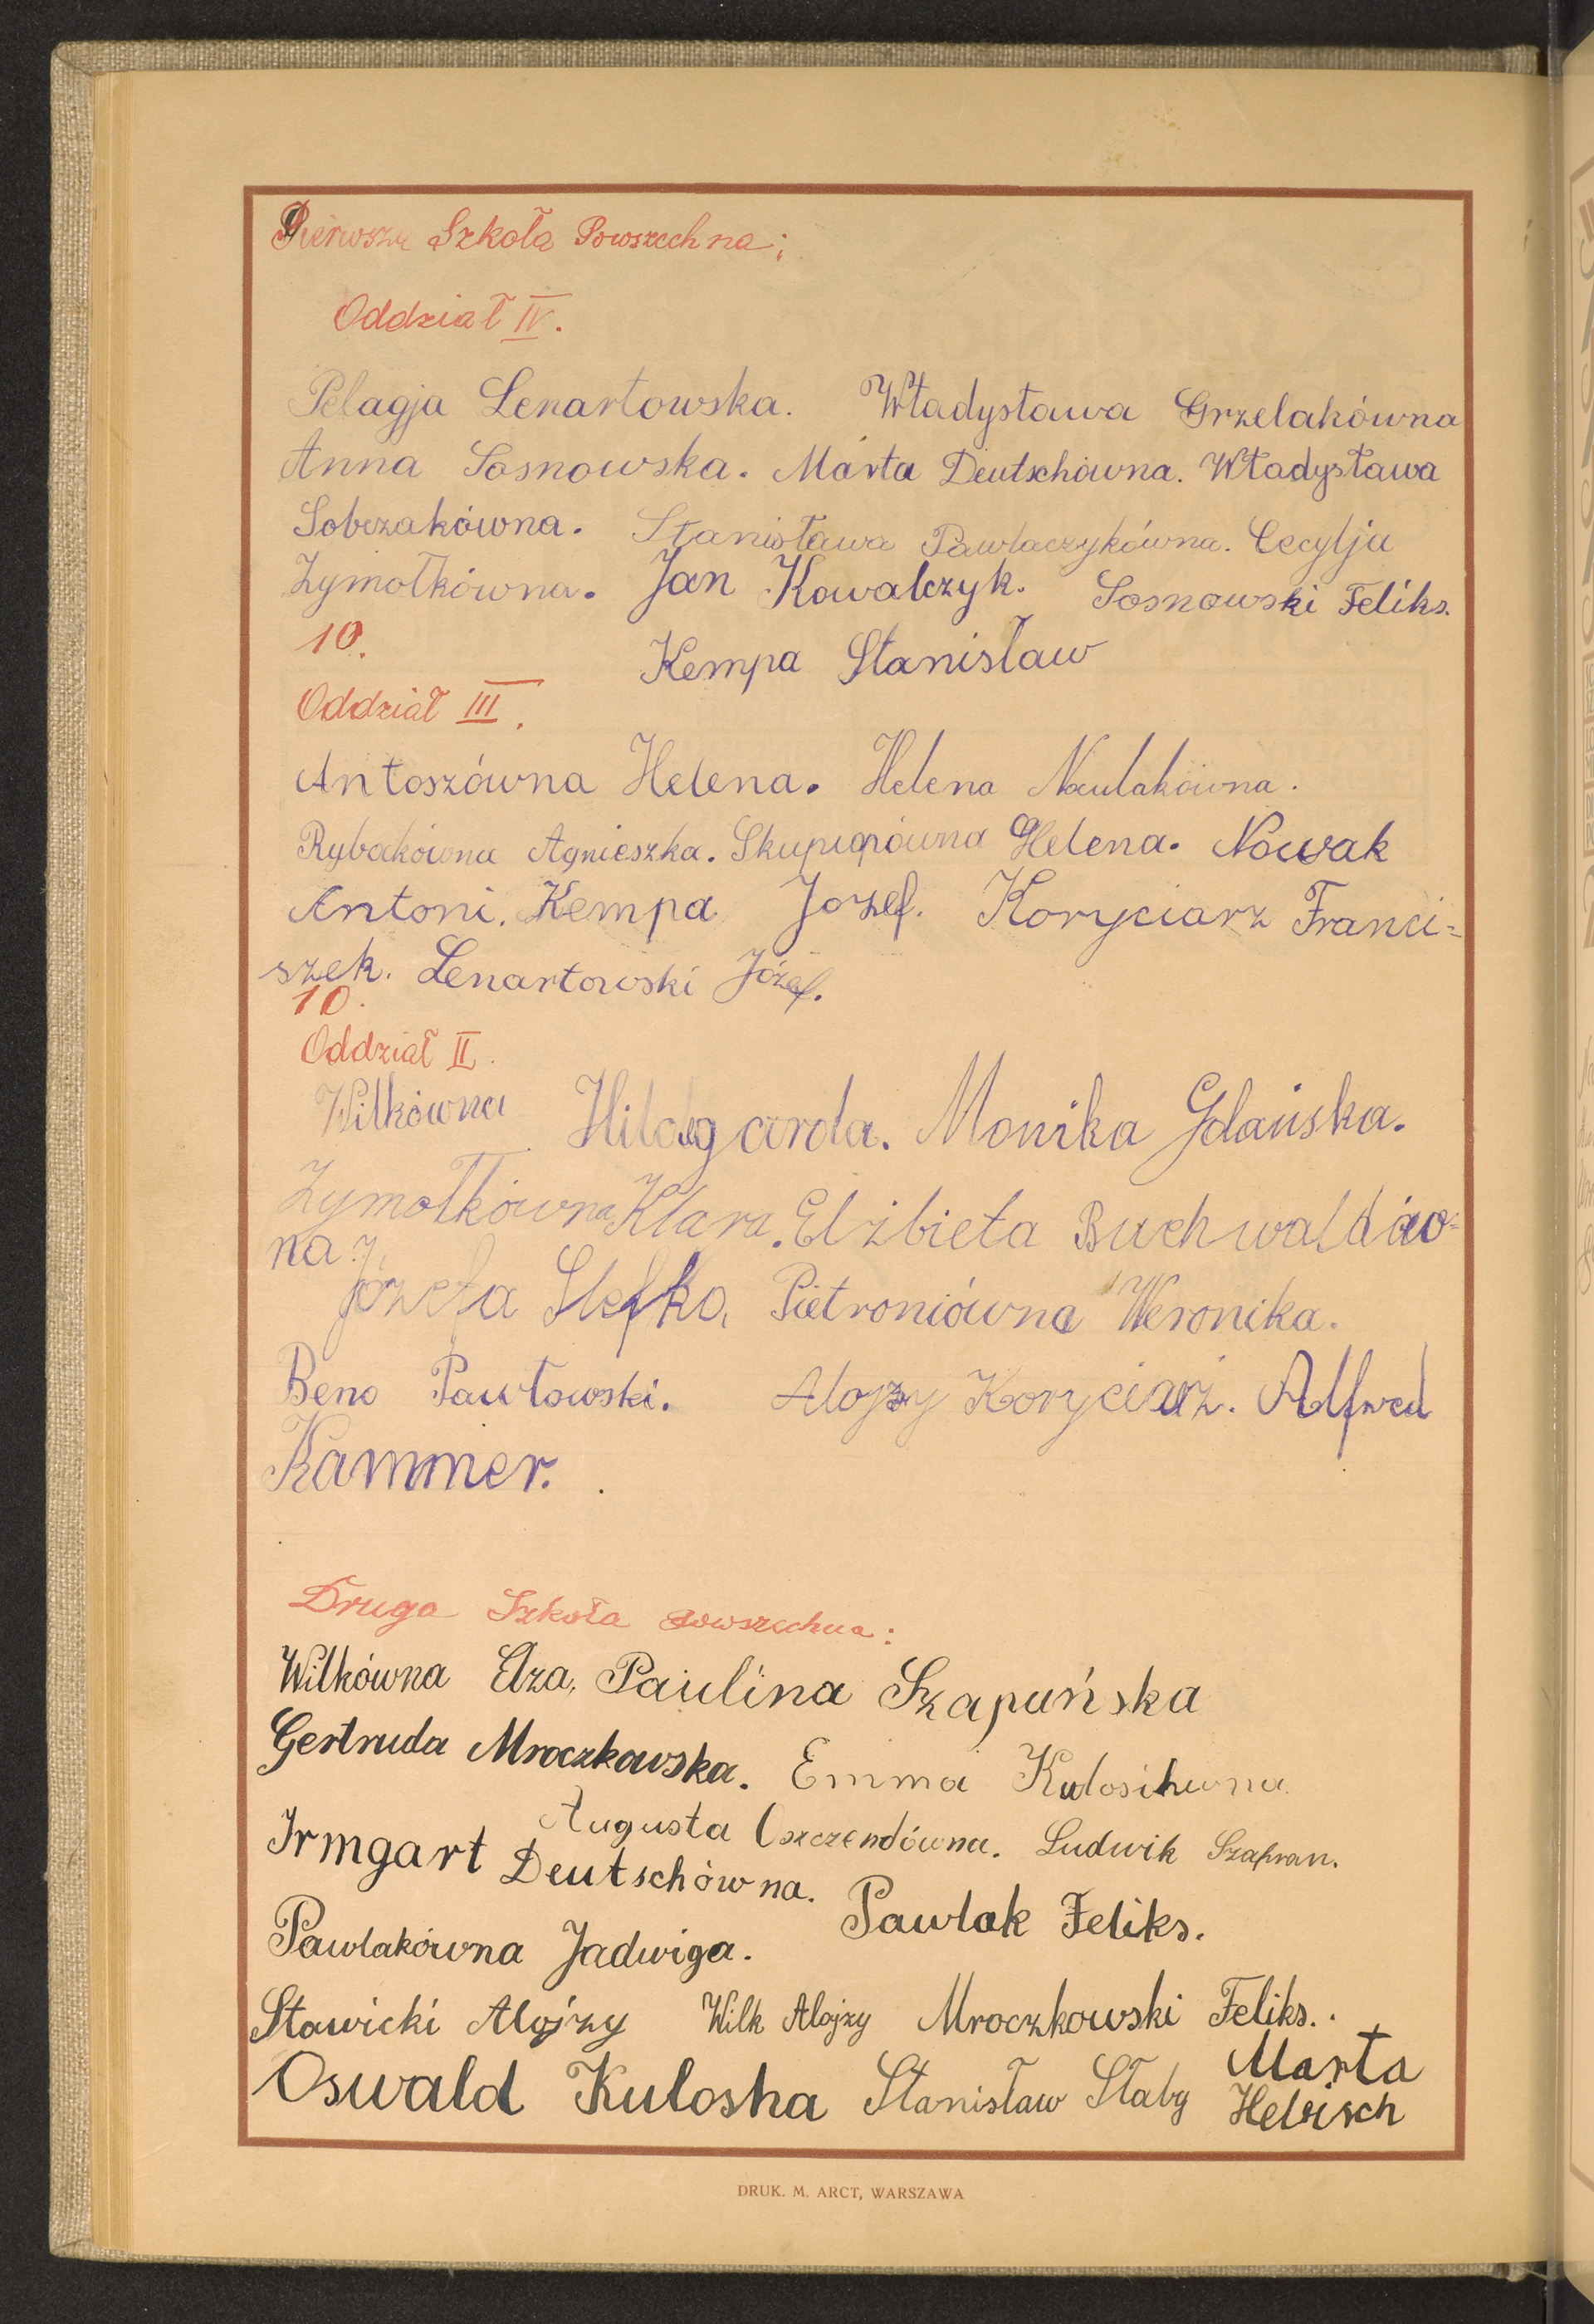 Pierwsza Szkoła Powszechna:
Oddział IV.
Pelagja Lenartowska. Władysława Grzelakówna
Anna Sosnowska. Marta Deutschówna. Władysława
Sobczakówna. Stanisława Pawlaczykówna. Cecylja
Zymołkówna. Jan Kowalczyk. Sosnowski Feliks.
10. Kempa Stanisław
Oddział III.
Antoszówna Helena. Helena Nawlakówna.
Rybakówna Agnieszka. Helena. Nowak
Antoni. Kempa Jozef. Koryciarz Franci=
szek. Lenartowski Józef.
10.
Oddział II.
Wilkówna Hildegarda. Monika Gdańska.
Zymołkówna Klara. Elżbieta Buchwaldów=
na.
Józefa Slefko, Pietroniówna Weronika.
Beno Pawłowski. Alojzy Koryciarz. Alfred
Kammer.
Druga Szkoła Powszechna:
Wilkówna Elza, Paulina Szapańska
Gertruda Mroczkowska. Emma
Augusta Oszczendówna. Ludwik Szafran.
Irmgart Deutschówna.
Pawlak Feliks.
Pawlakówna Jadwiga.
Stawicki Alojzy Wilk Alojzy Mroczkowski Feliks.
Oswald Kulosha Stanisław Słaby Marta
Helbisch
DRUK. M. ARCT, WARSZAWA